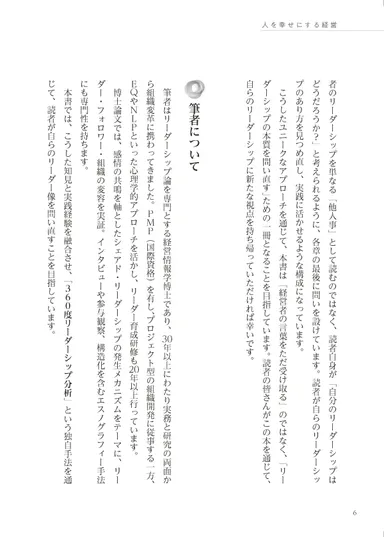 人を幸せにする経営
者のリーダーシップを単なる「他人事」として読むのではなく、読者自身が「自分のリーダーシップは
どうだろうか？」と考えられるように、各章の最後に問いを設けています。読者が自らのリーダーシッ
プのあり方を見つめ直し、実践に活かせるような構成になっています。
こうしたユニークなアプローチを通じて、本書は「経営者の言葉をただ受け取る」のではなく、「リー
ダーシップの本質を問い直す」ための一冊となることを目指しています。読者の皆さんがこの本を通じて、
自らのリーダーシップに新たな視点を持ち帰っていただければ幸いです。
筆者について
筆者はリーダーシップ論を専門とする経営情報学博士であり、30年以上にわたり実務と研究の両面か
ら組織変革に携わってきました。PMP（国際資格）を有し、プロジェクト型の組織開発に従事する一方、
EQやNLPといった心理学的アプローチを活かし、リーダー育成研修も20年以上行っています。
博士論文では、感情の共鳴を軸としたシェアド・リーダーシップの発生メカニズムをテーマに、リー
ダー・フォロワー・組織の変容を実証。インタビューや参与観察、構造化を含むエスノグラフィー手法
にも専門性を持ちます。
本書では、こうした知見と実践経験を融合させ、「360度リーダーシップ分析」という独自手法を通
じて、読者が自らのリーダー像を問い直すことを目指しています。
6